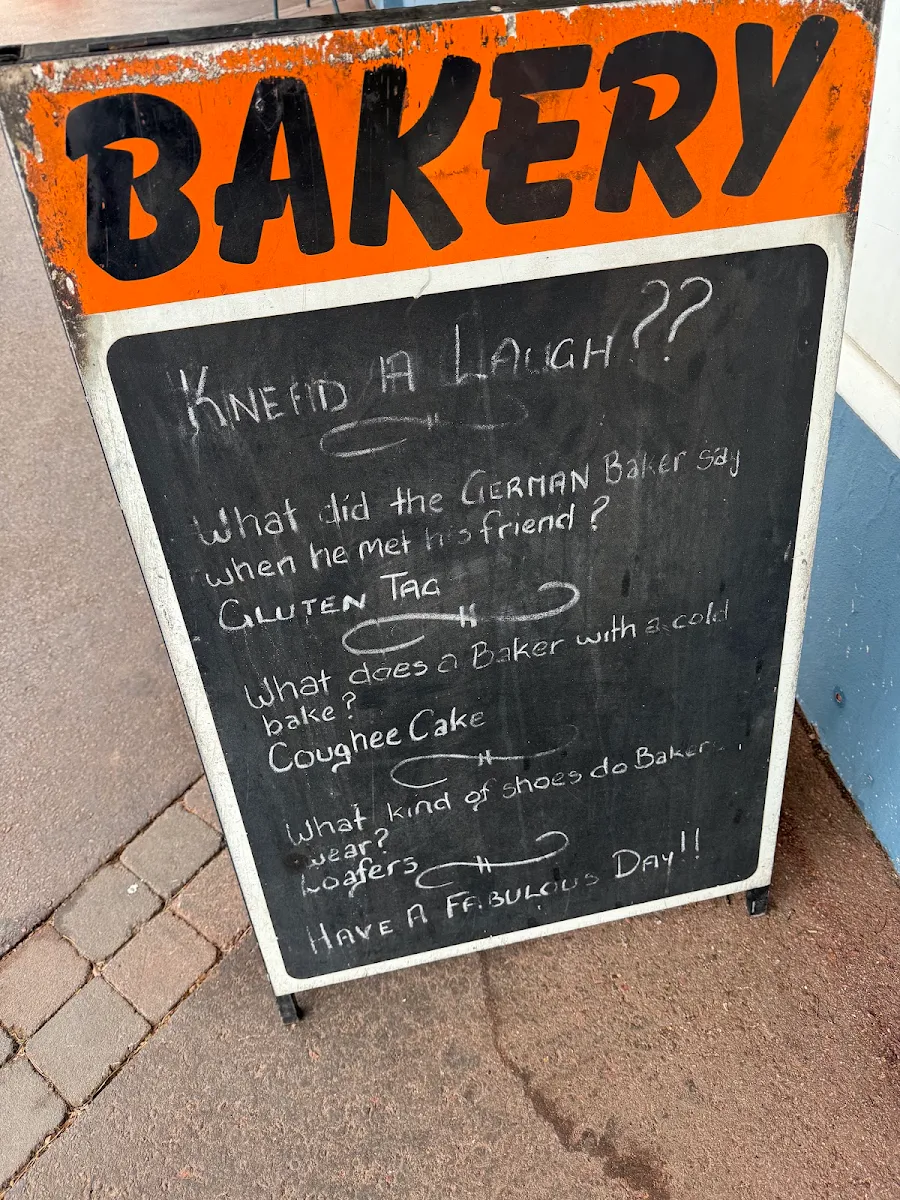 BAKERY
KNEAD A LAUGH??
What did the GERMAN Baker say
when he met his friend?
GLUTEN TAG
What does a Baker with a cold
bake?
Coughee Cake
What kind of shoes do Bakers
wear?
Loafers
HAVE A FABULOUS DAY!!